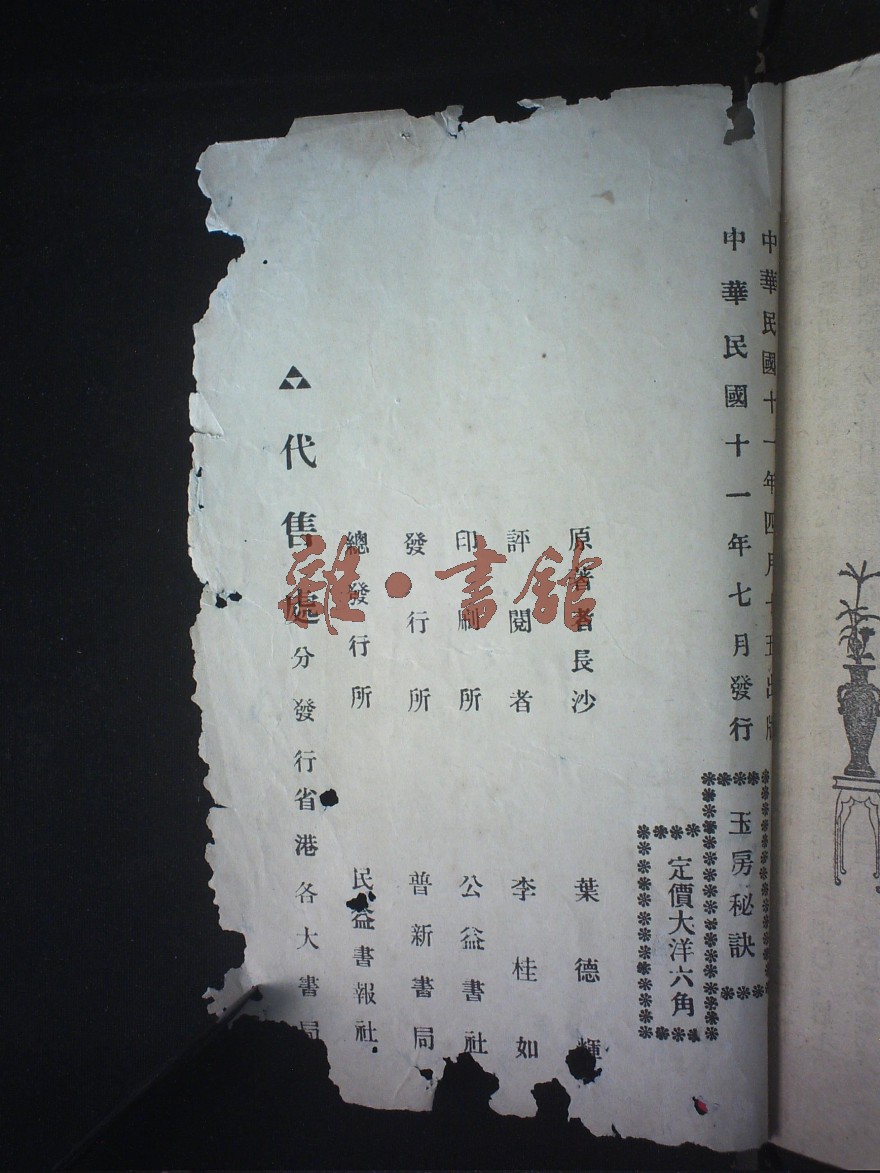 中華民國十一年四月十五出版
中華民國十一年七月發行
玉房秘訣
定價大洋六角
原著者長沙 葉德輝
評閱者 李桂如
印刷所 公益書社
發行所 普新書局
總發行所 民益書報社
代售處分發行省港各大書局
雜·書館